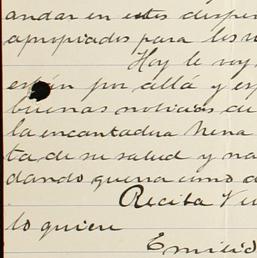 andar en estos
apropiados para los
Hoy le voy
por allá y
buenas noticias de
la encantadora Nena
ta de su salud y
dando guerra como
Reciba
lo quiere
Emilio